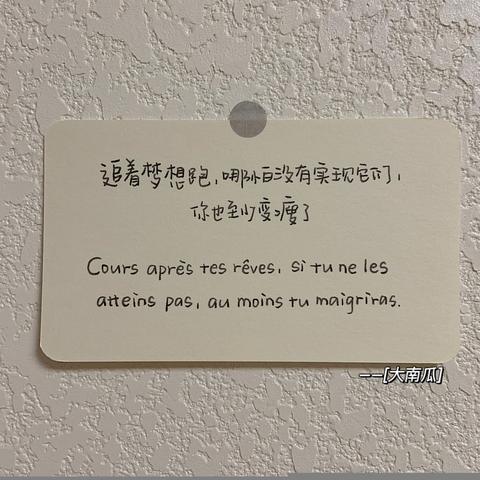 追着梦想跑，哪怕没有实现它们，
你也至少变瘦了
Cours après tes rêves, si tu ne les
atteins pas, au moins tu maigriras.
——[大南瓜]